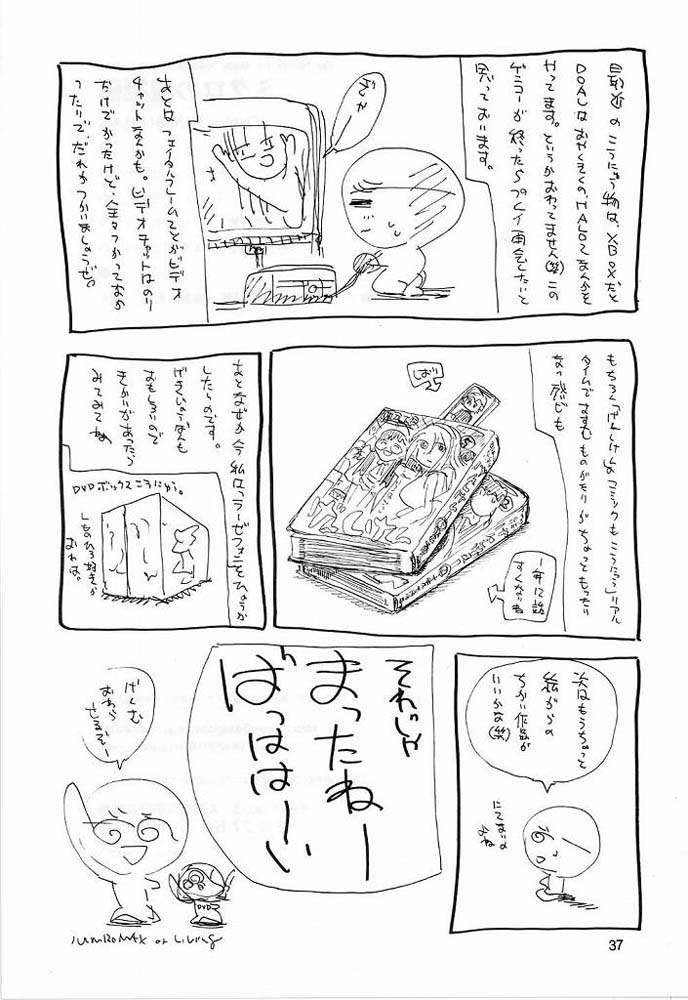 最近のこうにゅう物は、XBOXだと
DOAUはおやくそく。HALO2なんかを
やってます。というかおわってません(笑)この
ゲンコーが終ったらプレイ再会したいと
思っております。
あとはフェイタルフレームでとかビデオ
チャットなんかも。ビデオチャットはのり
だけでかったけど、全々つかってなか
ったりで、だれかつかいましょうぜ。
もちろん「げんしけん」のコミックもこうにゅう。リアル
タイムですすむものがたりがちょっともったい
ない感じも
しおり
げんしけん
1年12話
すくないね
あとなぜか今私はラーゼフォンをひょうか
したいのです。
げきじょうばんも
おもしろいので
きかいがあったら
みてみてね
DVDボックスこうにゅう。
次はもうちょっと
絵がらの
ちかい作品が
いいかな(笑)
にてないの
よね
それじゃ
まったねー
ばっはは〜い
げんむ
DVD
37